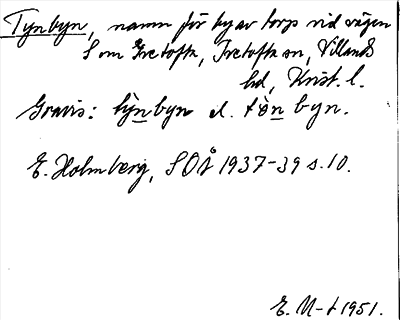 Tynbyn, namn för by av torp vid vägen
S om Ivetofta, Ivetofta sn, Villands
hd, Krist. l.
Gravis: tỳnbyn el. tön byn.
E. Holmberg, SOÅ 1937-39 s. 10.
E. M-t 1951.